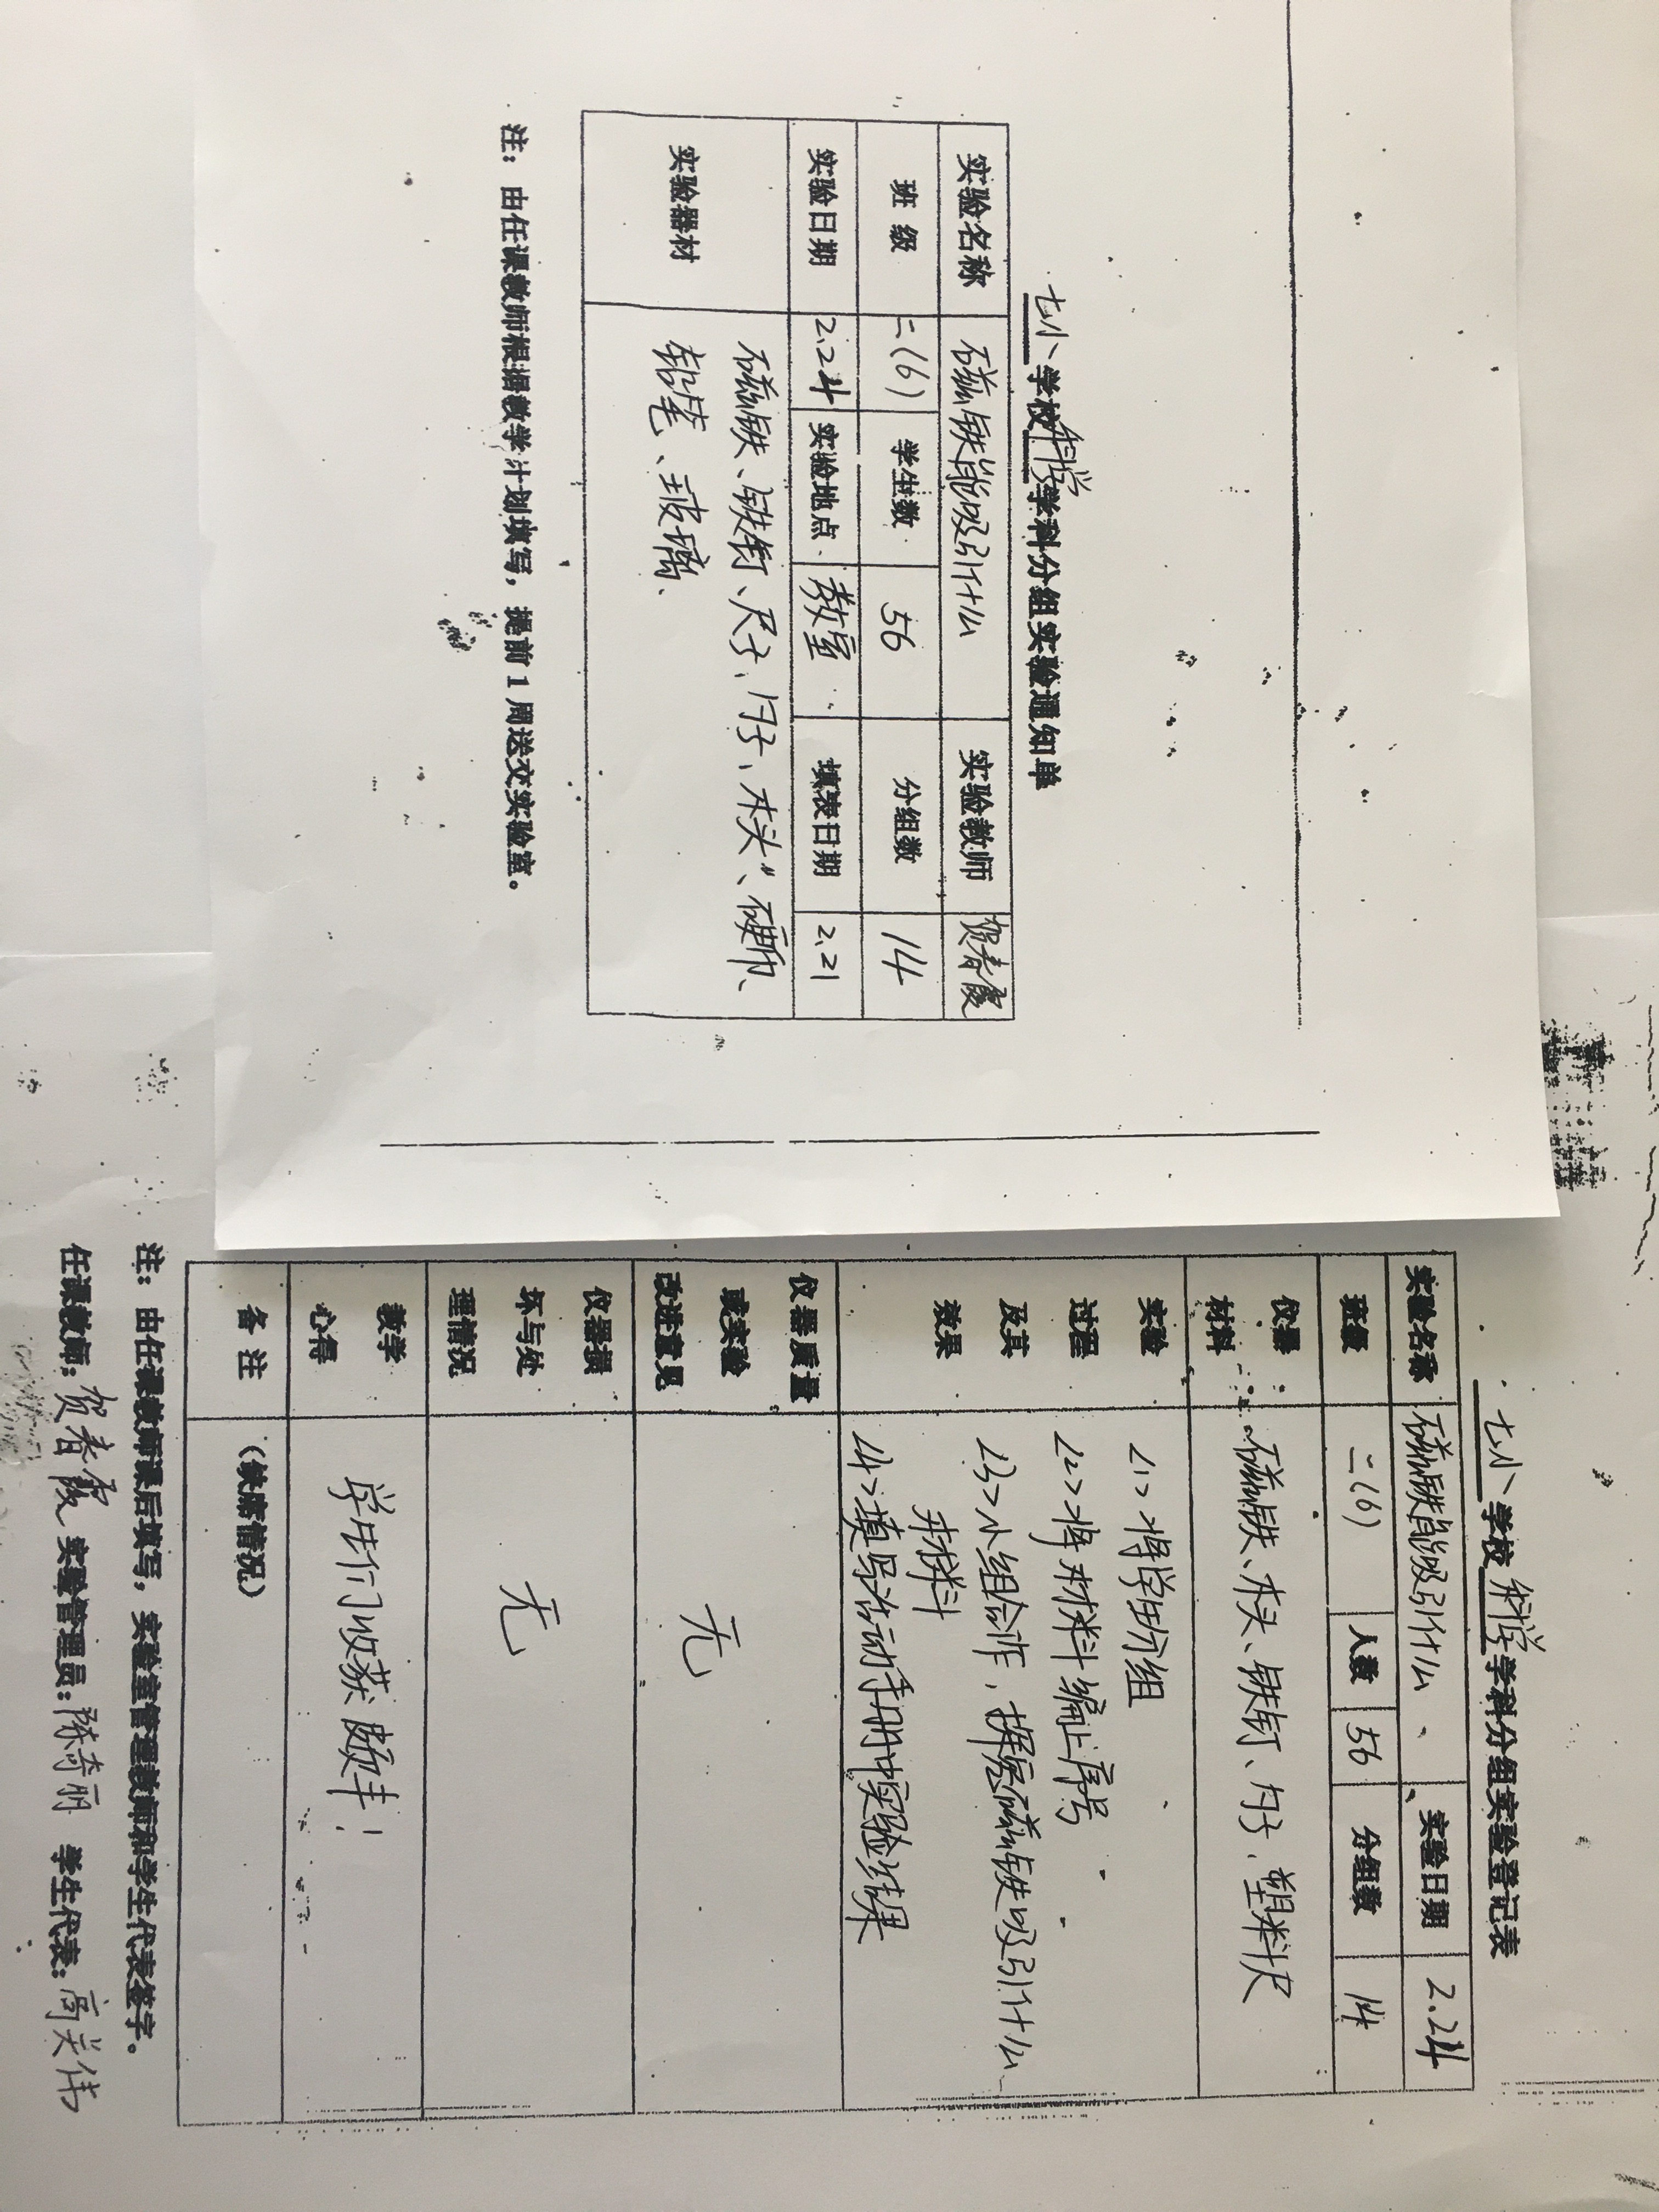 七小学校科学学科分组实验通知单
实验名称 磁铁能吸引什么 实验教师 贺春霞
班 级 二(6) 学生数 56 分组数 14
实验日期 2.24 实验地点 教室 填表日期 2.21
实验器材 磁铁、铁钉、尺子、勺子、木头、硬币、
铅笔、玻璃、
注：由任课教师根据教学计划填写，提前1周送交实验室。
七小学校科学学科分组实验登记表
实验名称 磁铁能吸引什么、 实验日期 2.24
班级 二(6) 人数 56 分组数 14
仪器
材料
磁铁、木头、铁钉、勺子、塑料尺
实验
过程
及其
效果
<1>将学生分组
<2>将材料编上序号
<3>小组合作，探究磁铁吸引什么
材料
<4>填写活动手册中实验结果
仪器质量
或实验
改进意见
无
仪器损
坏与处
理情况
无
教学
心得
学生们收获颇丰！
备 注 （缺席情况）
注：由任课教师课后填写，实验室管理教师和学生代表签字。
任课教师：贺春霞 实验管理员：陈奇丽 学生代表：高关伟